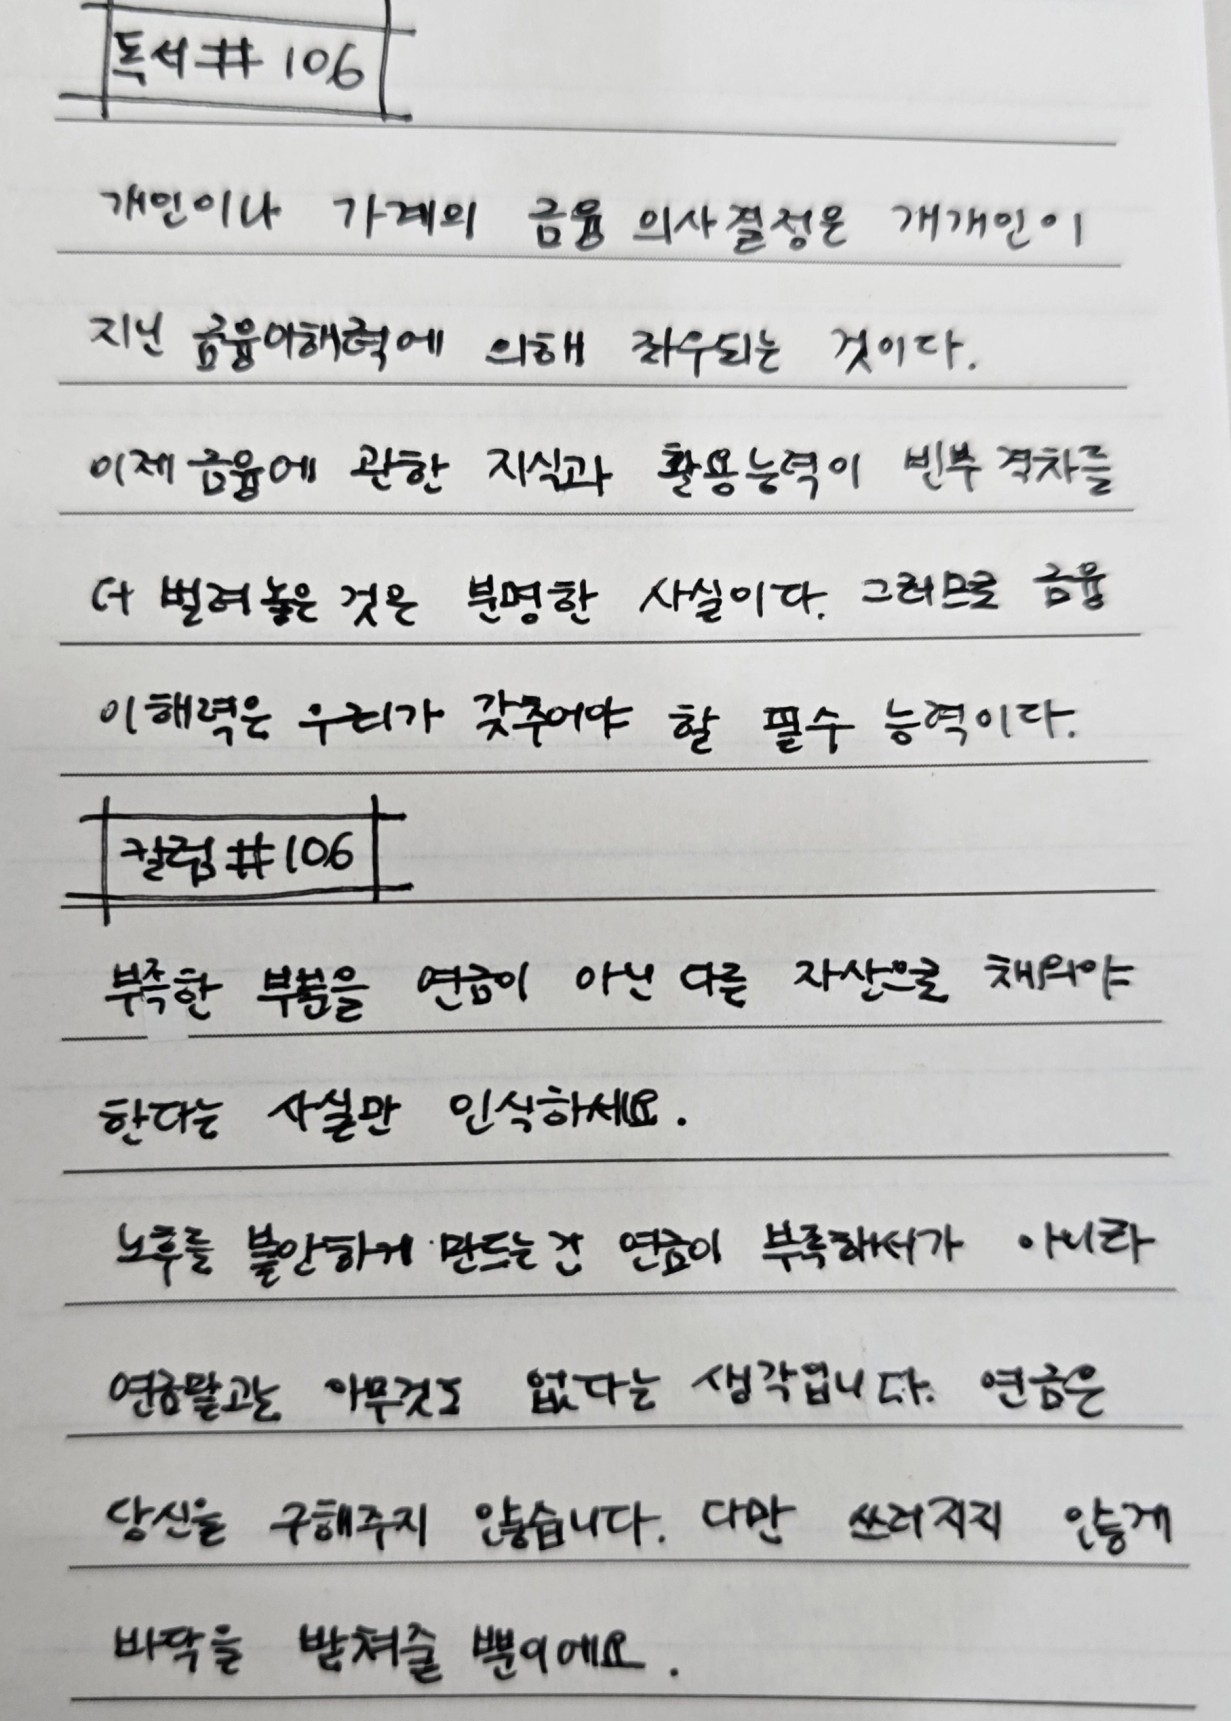 독서# 106
개인이나 가계의 금융 의사결정은 개개인이
지닌 금융이해력에 의해 좌우되는 것이다.
이제 금융에 관한 지식과 활용능력이 빈부 격차를
더 벌려놓은 것은 분명한 사실이다. 그러므로 금융
이해력은 우리가 갖추어야 할 필수 능력이다.
칼럼#106
부족한 부분을 연금이 아닌 다른 자산으로 채워야
한다는 사실만 인식하세요.
노후를 불안하게 만드는건 연금이 부족해서가 아니라
연금말고는 아무것도 없다는 생각입니다. 연금은
당신을 구해주지 않습니다. 다만 쓰러지지 않게
바닥을 받쳐줄 뿐이에요.